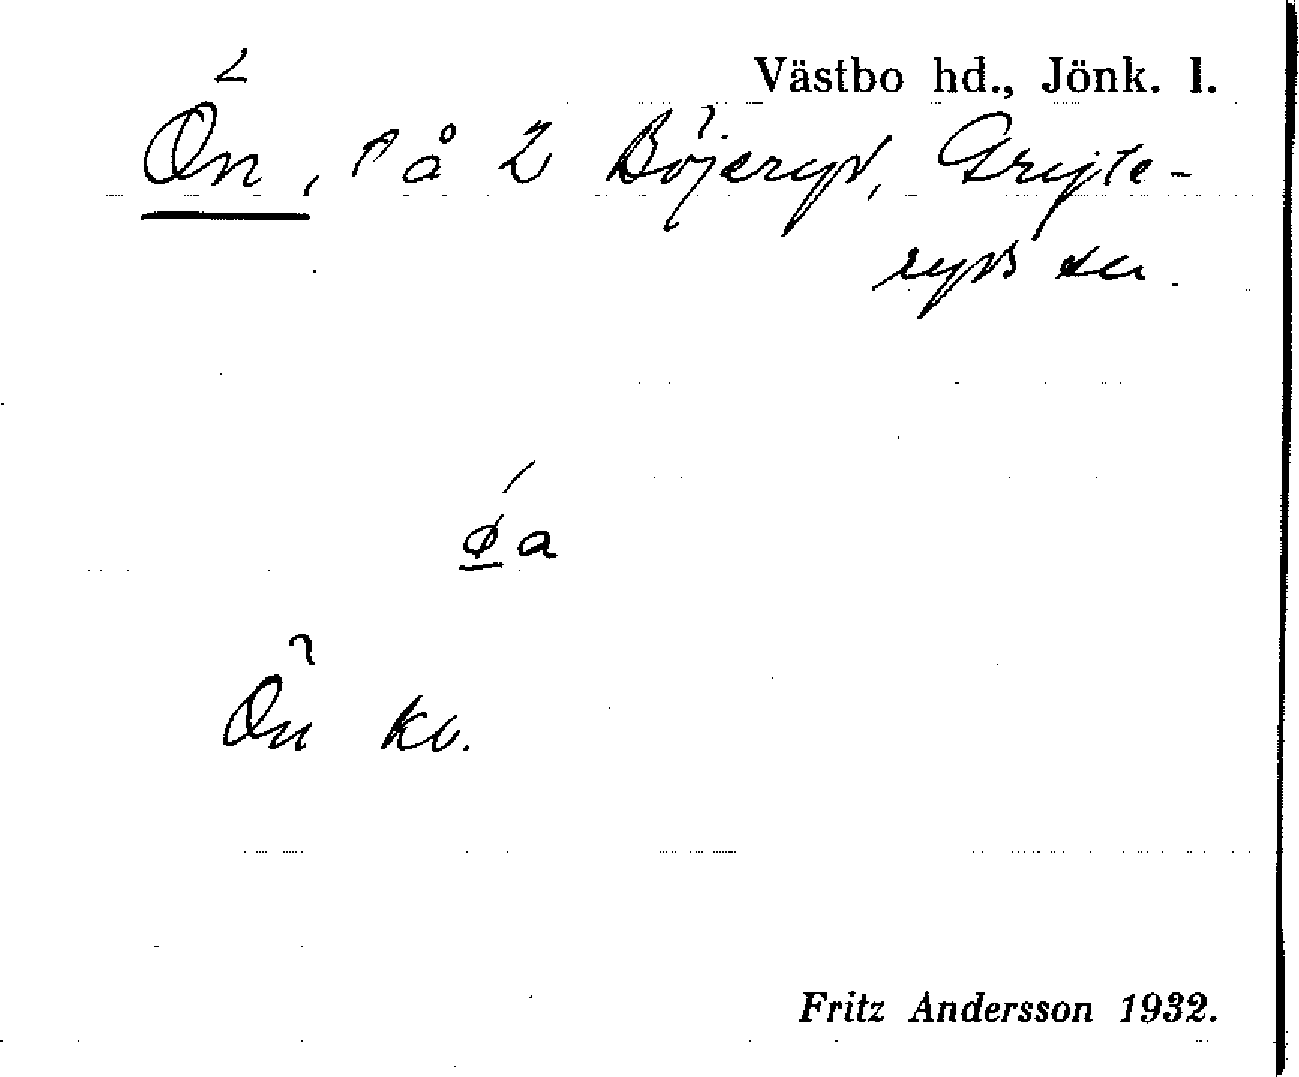 Västbo hd., Jönk. l.
Ön, på 2 Böjeryd, Gryte-
ryds sn
øa
Ön kv.
Fritz Andersson 1932.